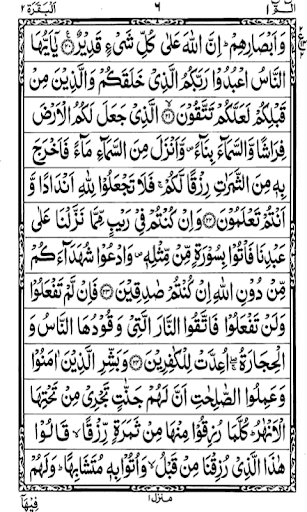 الٓـمّٓ ١ ٦ اَلْبَقَرَة ٢
وَاَبْصَارِهِمْ ؕ اِنَّ اللّٰهَ عَلٰی كُلِّ شَیْءٍ قَدِیْرٌ ﴿۲۰﴾ یٰۤاَیُّهَا
النَّاسُ اعْبُدُوْا رَبَّكُمُ الَّذِیْ خَلَقَكُمْ وَالَّذِیْنَ مِنْ
قَبْلِكُمْ لَعَلَّكُمْ تَتَّقُوْنَ ﴿۲۱﴾ الَّذِیْ جَعَلَ لَكُمُ الْاَرْضَ
فِرَاشًا وَّالسَّمَآءَ بِنَآءً ۪ وَّاَنْزَلَ مِنَ السَّمَآءِ مَآءً فَاَخْرَجَ
بِهٖ مِنَ الثَّمَرٰتِ رِزْقًا لَّكُمْ ۚ فَلَا تَجْعَلُوْا لِلّٰهِ اَنْدَادًا وَّ
اَنْتُمْ تَعْلَمُوْنَ ﴿۲۲﴾ وَاِنْ كُنْتُمْ فِیْ رَیْبٍ مِّمَّا نَزَّلْنَا عَلٰی
عَبْدِنَا فَاْتُوْا بِسُوْرَةٍ مِّنْ مِّثْلِهٖ ۪ وَادْعُوْا شُهَدَآءَكُمْ
مِّنْ دُوْنِ اللّٰهِ اِنْ كُنْتُمْ صٰدِقِیْنَ ﴿۲۳﴾ فَاِنْ لَّمْ تَفْعَلُوْا
وَلَنْ تَفْعَلُوْا فَاتَّقُوا النَّارَ الَّتِیْ وَقُوْدُهَا النَّاسُ وَ
الْحِجَارَةُ ۖۚ اُعِدَّتْ لِلْكٰفِرِیْنَ ﴿۲۴﴾ وَبَشِّرِ الَّذِیْنَ اٰمَنُوْا
وَعَمِلُوا الصّٰلِحٰتِ اَنَّ لَهُمْ جَنّٰتٍ تَجْرِیْ مِنْ تَحْتِهَا
الْاَنْهٰرُ ؕ كُلَّمَا رُزِقُوْا مِنْهَا مِنْ ثَمَرَةٍ رِّزْقًا ۙ قَالُوْا
هٰذَا الَّذِیْ رُزِقْنَا مِنْ قَبْلُ ۙ وَاُتُوْا بِهٖ مُتَشَابِهًا ؕ وَلَهُمْ
منزل ١
فِیْهَاۤ